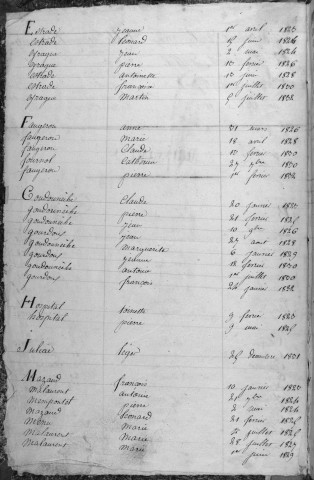 Estrade jeanne 1er avril 1823
Estrade Leonard 1826
Eyraque jean 2 mai 1826
Eyraque pierre 1er fevrier 1828
Estrade antoinette 1er juin 1828
Estrade francois 1er juillet 1830
Eyraque Martin juillet 1832
Faugeron anne 21 mars 1826
faugeron Marie 18 avril 1828
faugeron Claude 1er fevrier 1830
Catherine 27 7bre 1830
faugeron pierre 1er fevrier 1832
Goudounèche Claude 20 janvier 1823
goudounèche pierre 21 fevrier 1826
gourdon jean 10 9bre 1826
gourdon jean 24 aout 1828
goudounèche Marguerite 6 janvier 1829
goudounèche 18 fevrier 1830
goudounèche antoine 1er juillet 1830
gourdon françois 24 janvier 1832
Hospital tonnette 9 fevrier 1823
hospital pierre 9 mai 1825
Juliac léger 25 decembre 1831
Mazaud françois 10 janvier 1823
Malaurent antoine 21 7bre 1824
Monpontet pierre 2 mai 1826
Mazaud Leonard 21 fevrier 1826
Marie juillet 1826
Malaurent Marie 28 juillet 1829
Malaurent Marie 1er juin 1829